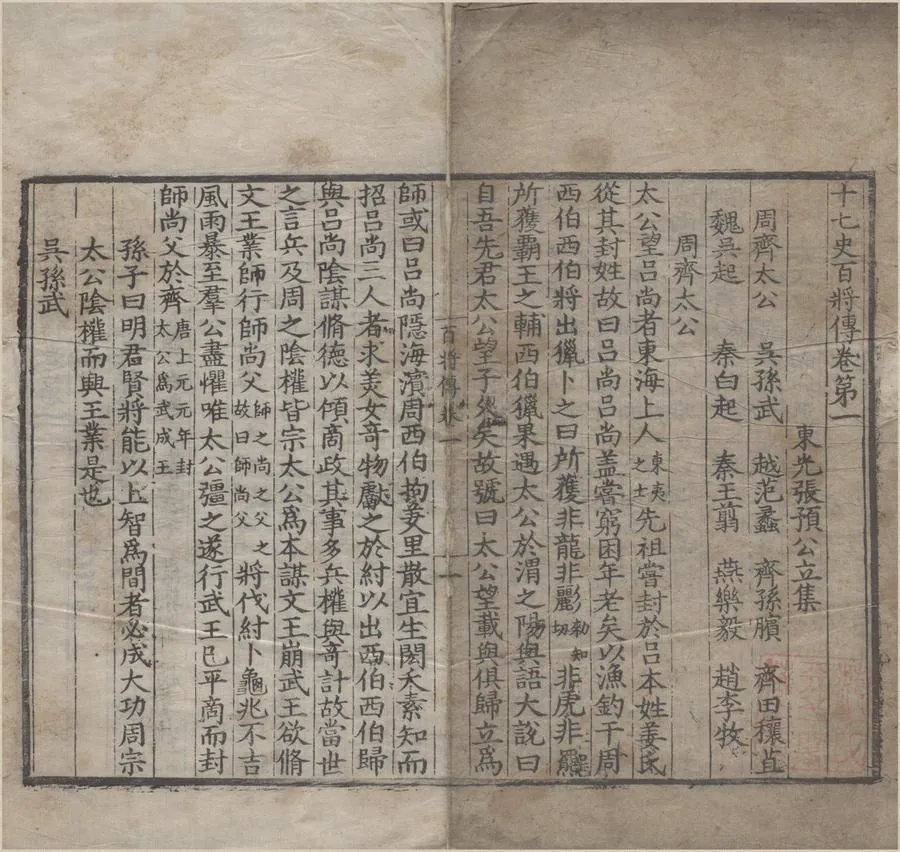 十七史百將傳卷第一
東光張預公立集
周齊太公 吳孫武 越范蠡 齊孫臏 齊田穰苴
魏吳起 秦白起 秦王翦 燕樂毅 趙李牧
周齊太公
太公望呂尚者東海上人東夷之士先祖嘗封於呂本姓姜氏
從其封姓故曰呂尚呂尚盖嘗窮困年老矣以漁釣干周
西伯西伯將出獵卜之曰所獲非龍非彲勑知切非虎非羆
所獲霸王之輔西伯獵果遇太公於渭之陽與語大說曰
自吾先君太公望子久矣故號曰太公望載與俱歸立為
百將傳卷一
一
師或曰呂尚隱海濱周西伯拘羑里散宜生閎夭素知而
招呂尚三人者求美女竒物獻之於紂以出西伯西伯歸
與呂尚陰謀脩德以傾商政其事多兵權與竒計故當世
之言兵及周之陰權皆宗太公爲本謀文王崩武王欲脩
文王業師行師尚父師之尚之父之故曰師尚父將伐紂卜龜兆不吉
風雨暴至羣公盡懼唯太公彊之遂行武王已平商而封
師尚父於齊唐上元元年封太公爲武成王
孫子曰明君賢將能以上智爲間者必成大功周宗
太公陰權而興王業是也
吳孫武